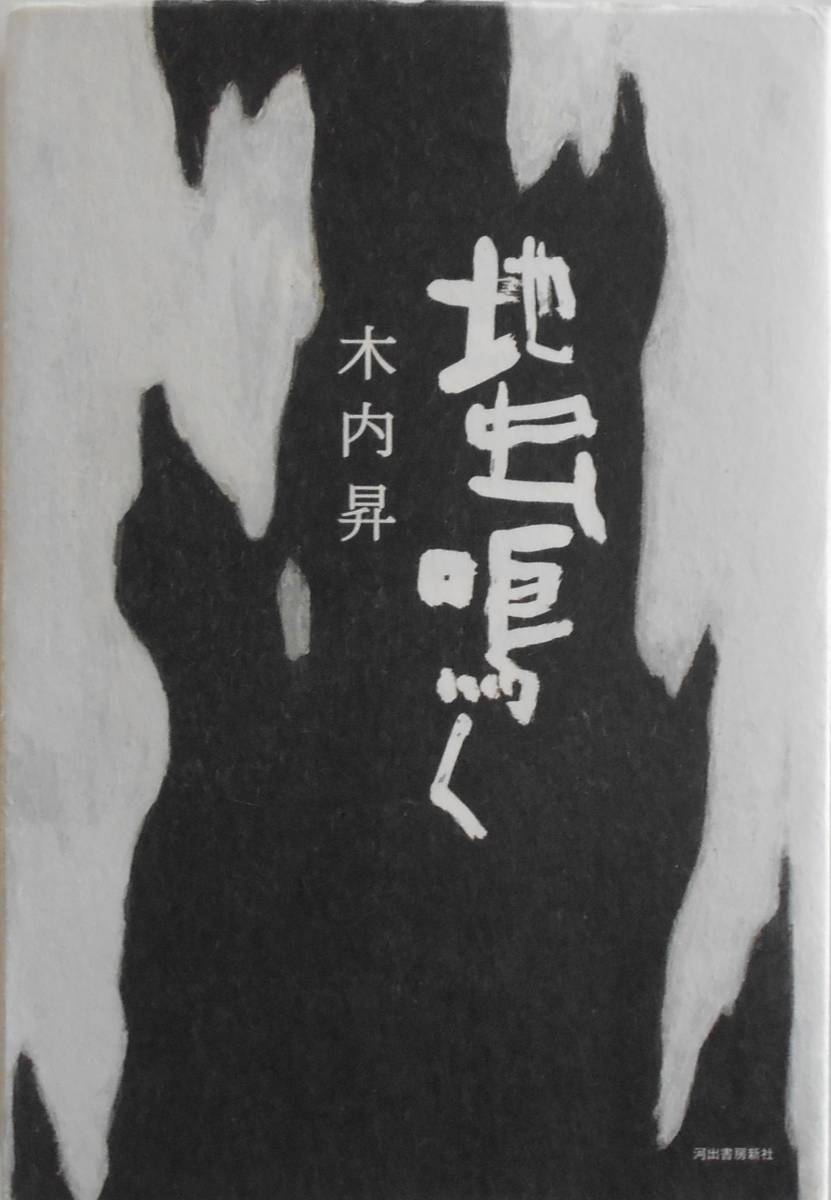 地虫鳴く
木内昇
河出書房新社